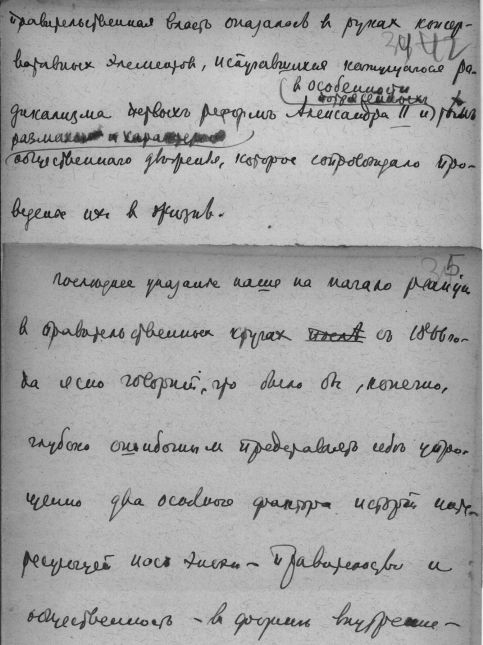 правительственная власть оказалось в руках консер-
вативных элементов, испугавшихся кажущегося ра-
в особенности
дикализма первых реформъ Александра II и тѣмъ
размахом и характером
общественнаго движения, которое сопровождало про-
ведение их в жизнь.
5
Последнее указание наше на начало реакции
в правительственных кругах послѣ съ 1866 го-
да ясно говорит, что было бы, конечно,
глубоко ошибочным представлять себѣ упро-
щенно два основного фактора истории инте-
ресующей нас эпохи – правительство и
общественность – в форме внутренне-